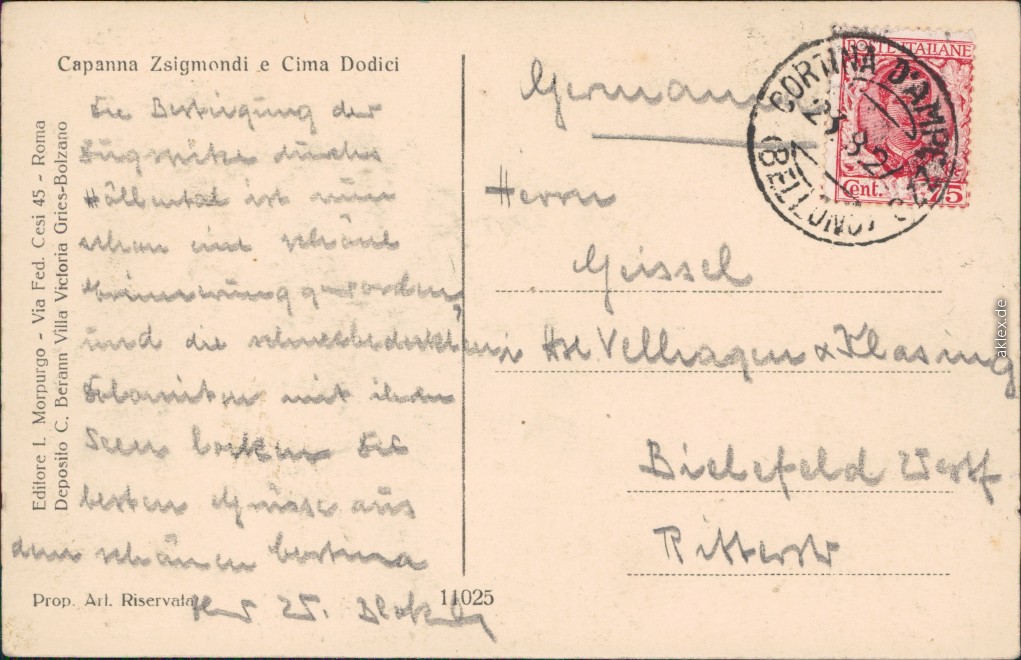 Capanna Zsigmondi e Cima Dodici
Die Besteigung der
Zugspitze durchs
Höllental ist nun
schon eine schöne
Erinnerung geworden,
und die schneebedeckten
Dolomiten mit ihren
Seen locken. Die
besten Grüsse aus
dem schönen Cortina
Editore I. Morpurgo - Via Fed. Cesi 45 - Roma
Deposito C. Berann Villa Victoria Gries-Bolzano
Prop. Art. Riservata
11025
Germania
POSTE ITALIANE
Cent. 75
CORTINA D'AMPEZZO
(BELLUNO)
Herrn
Geissel
Velhagen & Klasing
Bielefeld Westf
Ritterstr
aklex.de